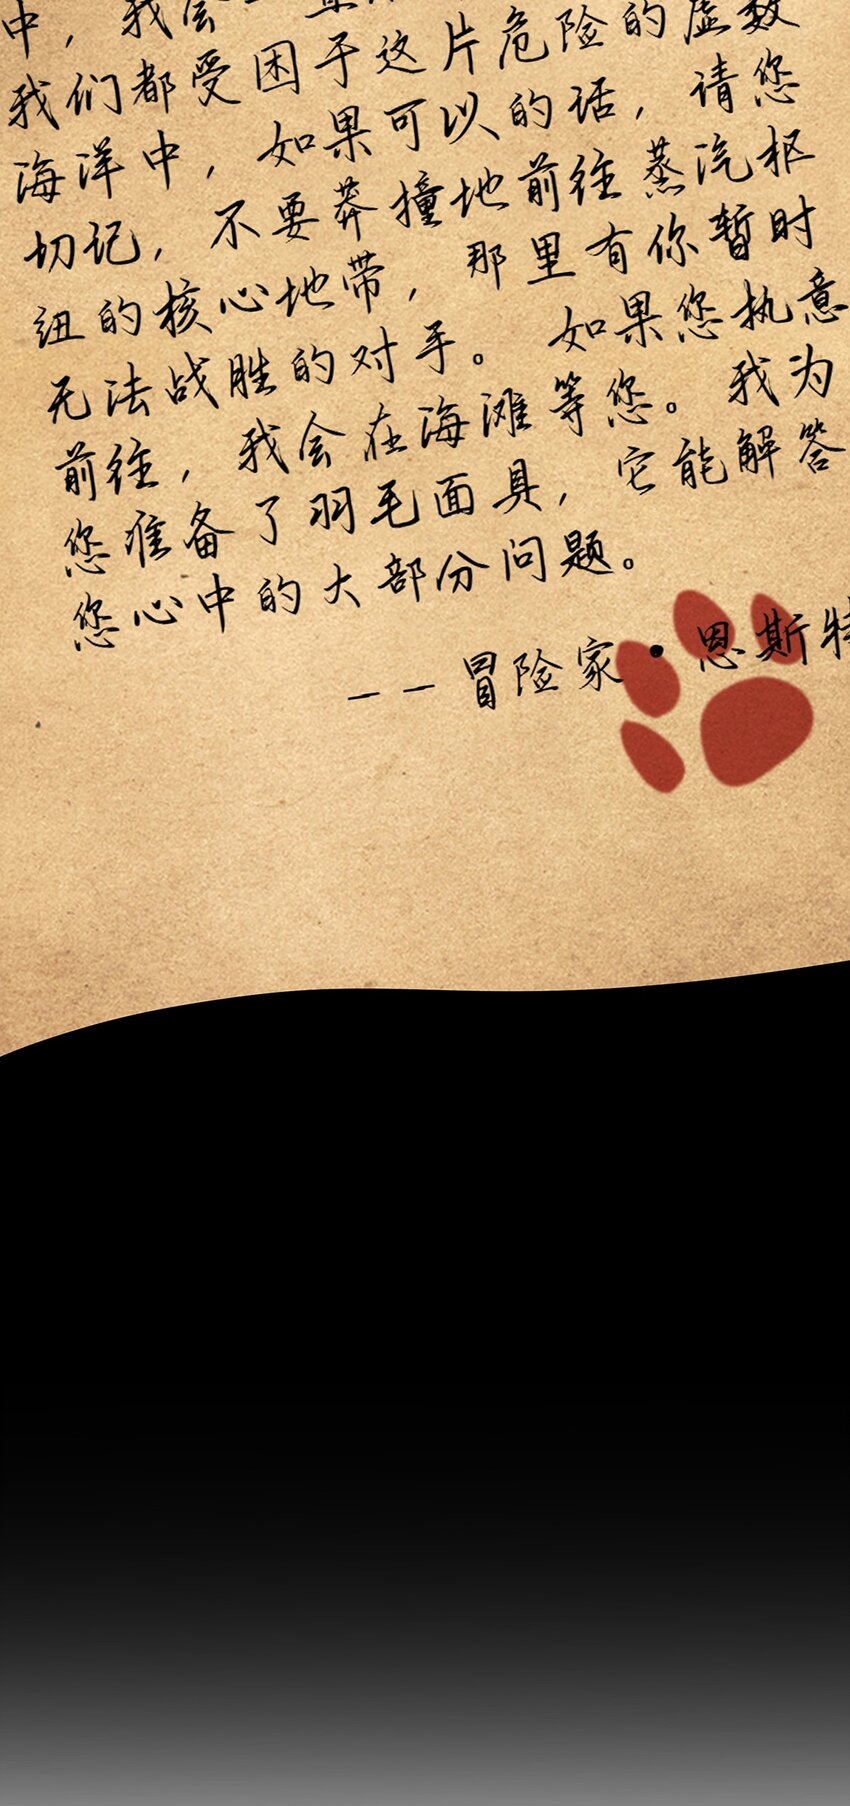 中，我会一直
我们都受困于这片危险的虚数
海洋中，如果可以的话，请您
切记，不要莽撞地前往蒸汽枢
纽的核心地带，那里有你暂时
无法战胜的对手。如果您执意
前往，我会在海滩等您。我为
您准备了羽毛面具，它能解答
您心中的大部分问题。
——冒险家·恩斯特